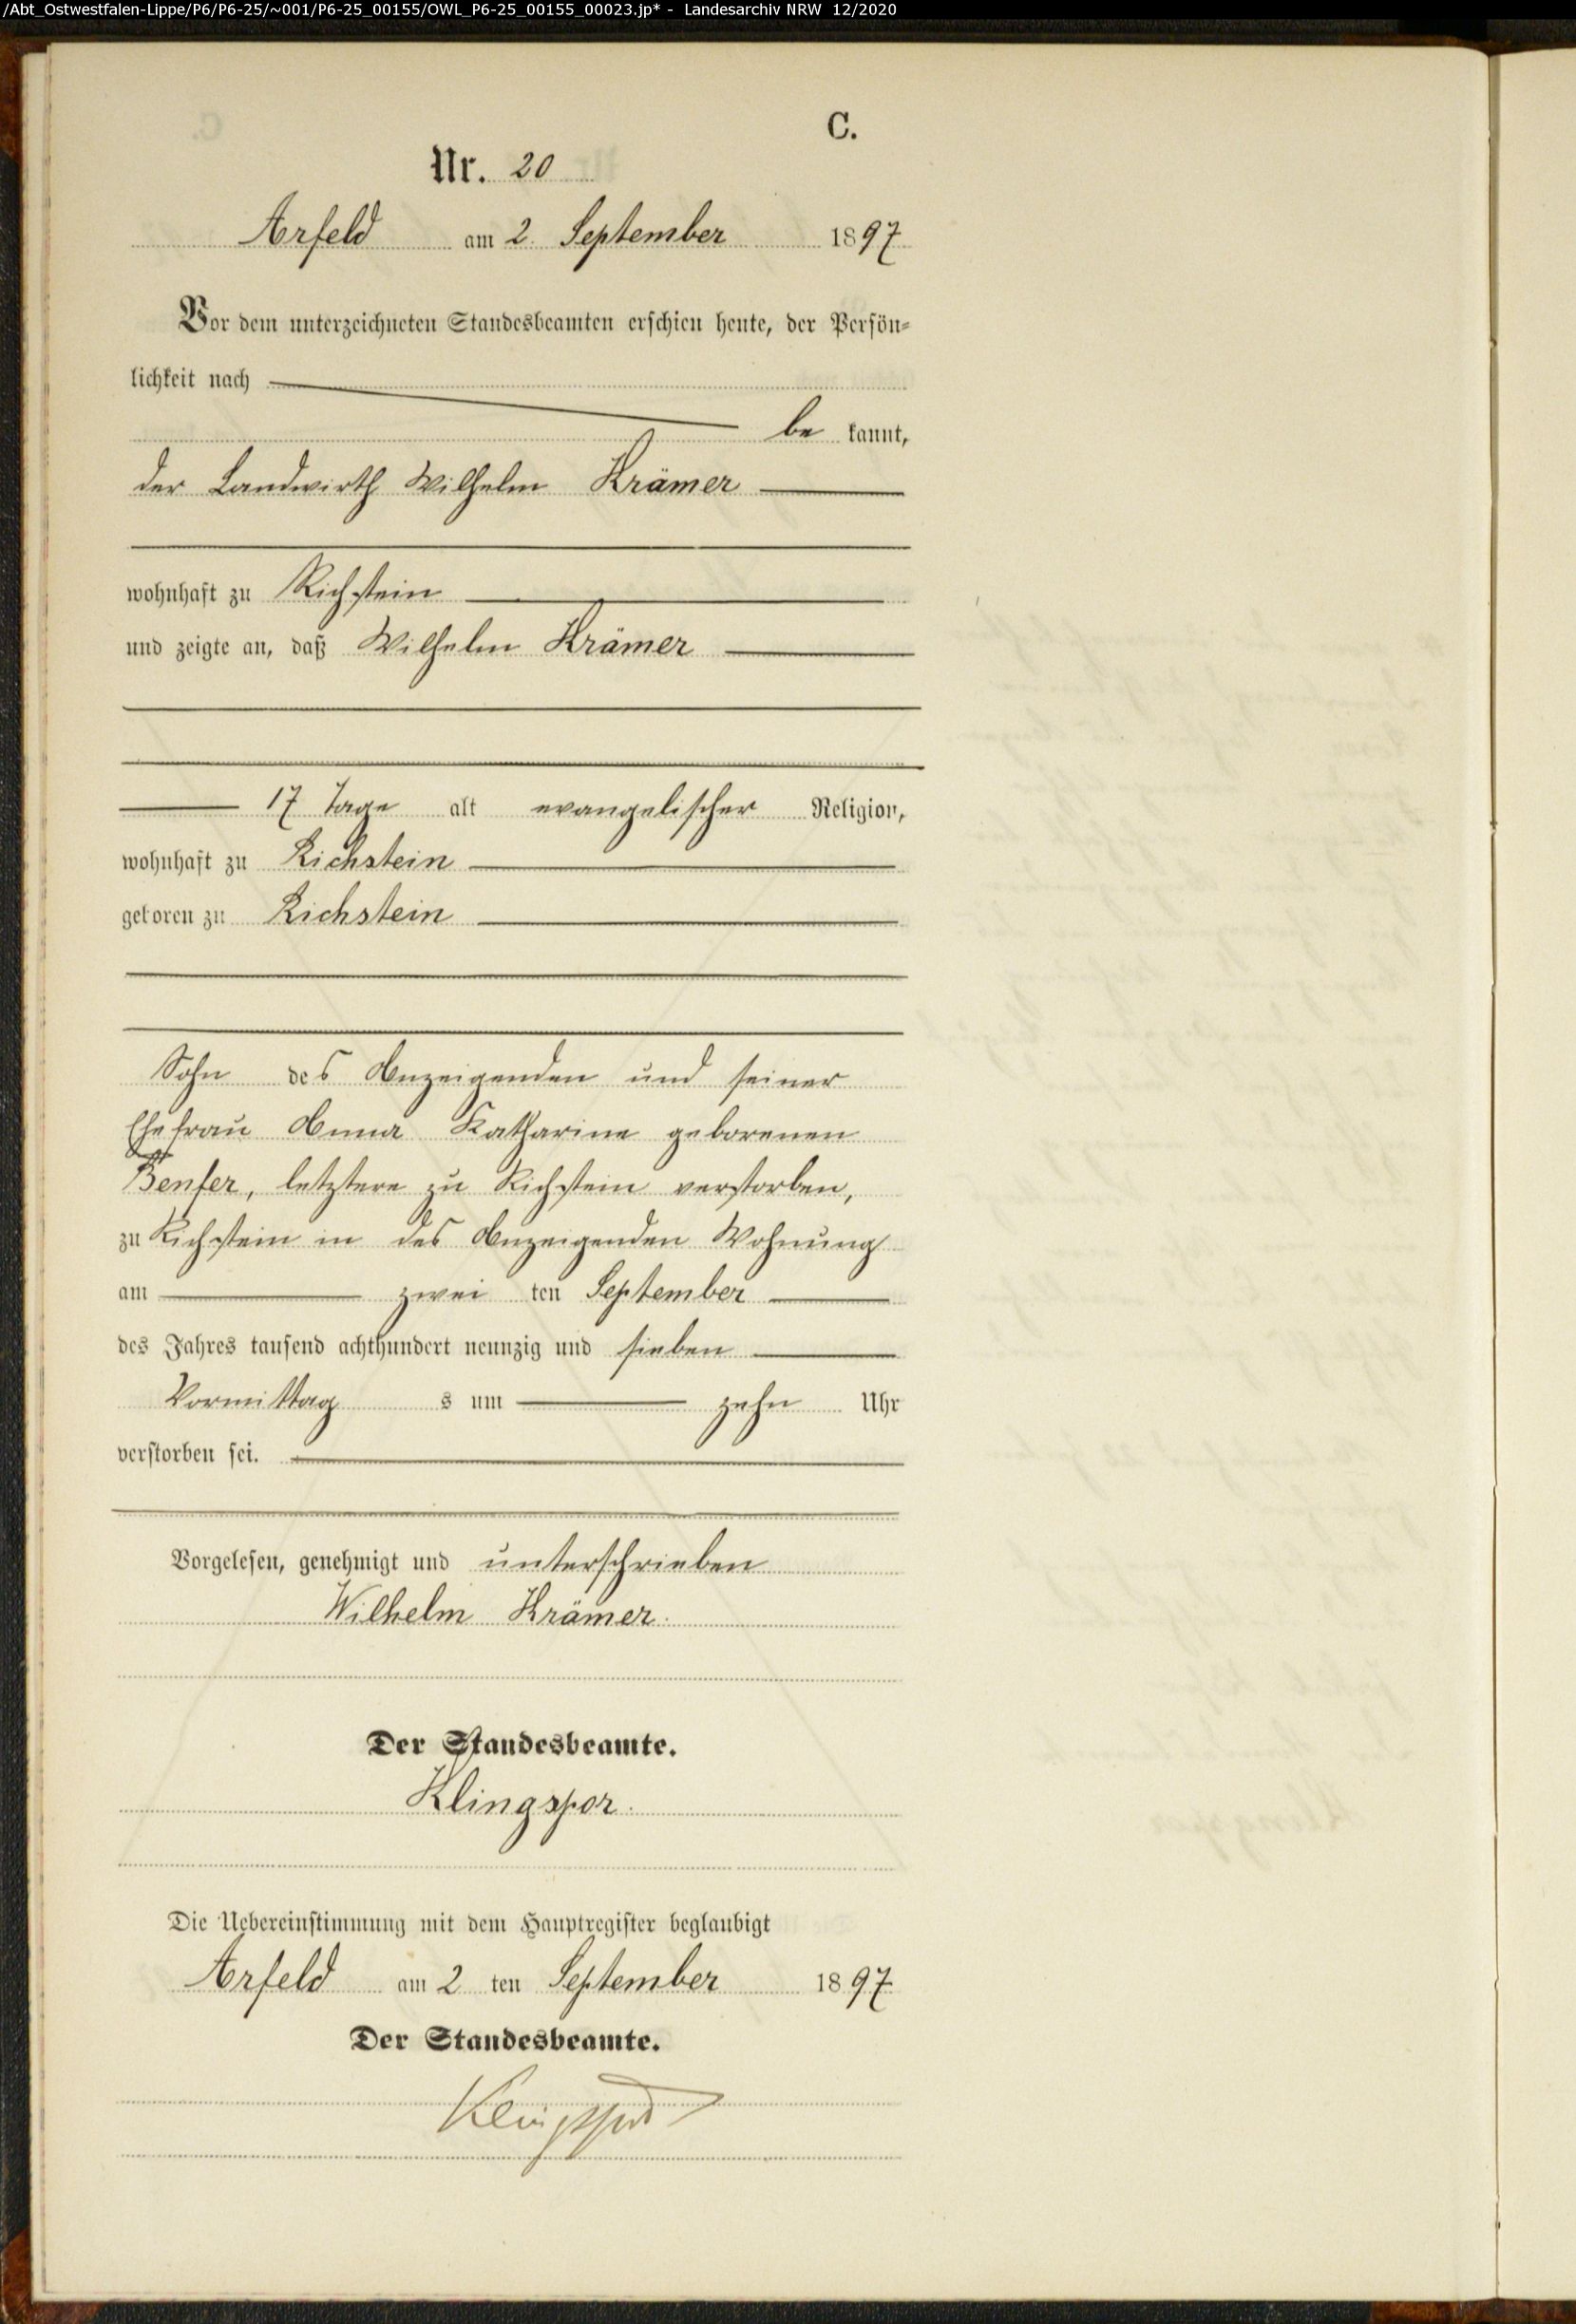 /Abt_Ostwestfalen-Lippe/P6/P6-25/~001/P6-25_00155/OWL_P6-25_00155_00023.jp* - Landesarchiv NRW 12/2020
C.
Nr. 20
Arfeld am 2. September 1897
Vor dem unterzeichneten Standesbeamten erschien heute, der Persön-
lichkeit nach
be kannt,
der Landwirth Wilhelm Krämer
wohnhaft zu Richstein
und zeigte an, daß Wilhelm Krämer
17 Tage alt evangelischer Religion,
wohnhaft zu Richstein
geboren zu Richstein
Sohn des Anzeigenden und seiner
Ehefrau Anna Katharine geborenen
Benfer, letztere zu Richstein verstorben,
zu Richstein in des Anzeigenden Wohnung
am zwei ten September
des Jahres tausend achthundert neunzig und sieben
Vormittag s um zehn Uhr
verstorben sei.
Vorgelesen, genehmigt und unterschrieben
Wilhelm Krämer.
Der Standesbeamte.
Klingspor.
Die Uebereinstimmung mit dem Hauptregister beglaubigt
Arfeld am 2 ten September 1897
Der Standesbeamte.
Klingspor